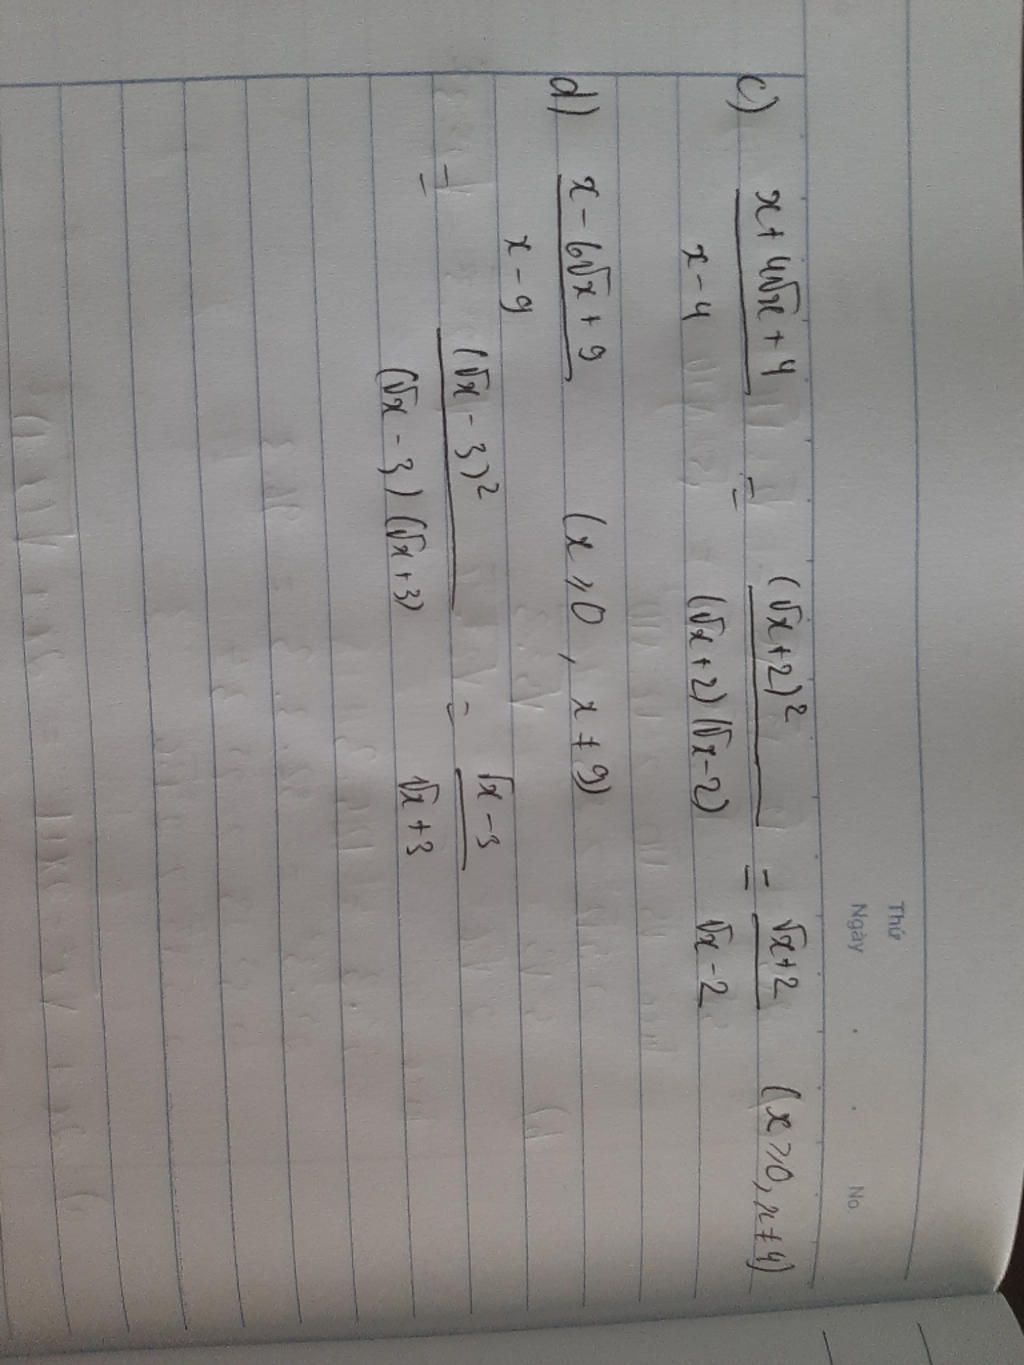 Thứ
Ngày . . No.
c) x + 4√x + 4 / x - 4 = (√x + 2)² / (√x + 2)(√x - 2) = √x + 2 / √x - 2 (x ⩾ 0, x ≠ 4)
d) x - 6√x + 9 / x - 9 (x ⩾ 0, x ≠ 9)
= (√x - 3)² / (√x - 3)(√x + 3) = √x - 3 / √x + 3